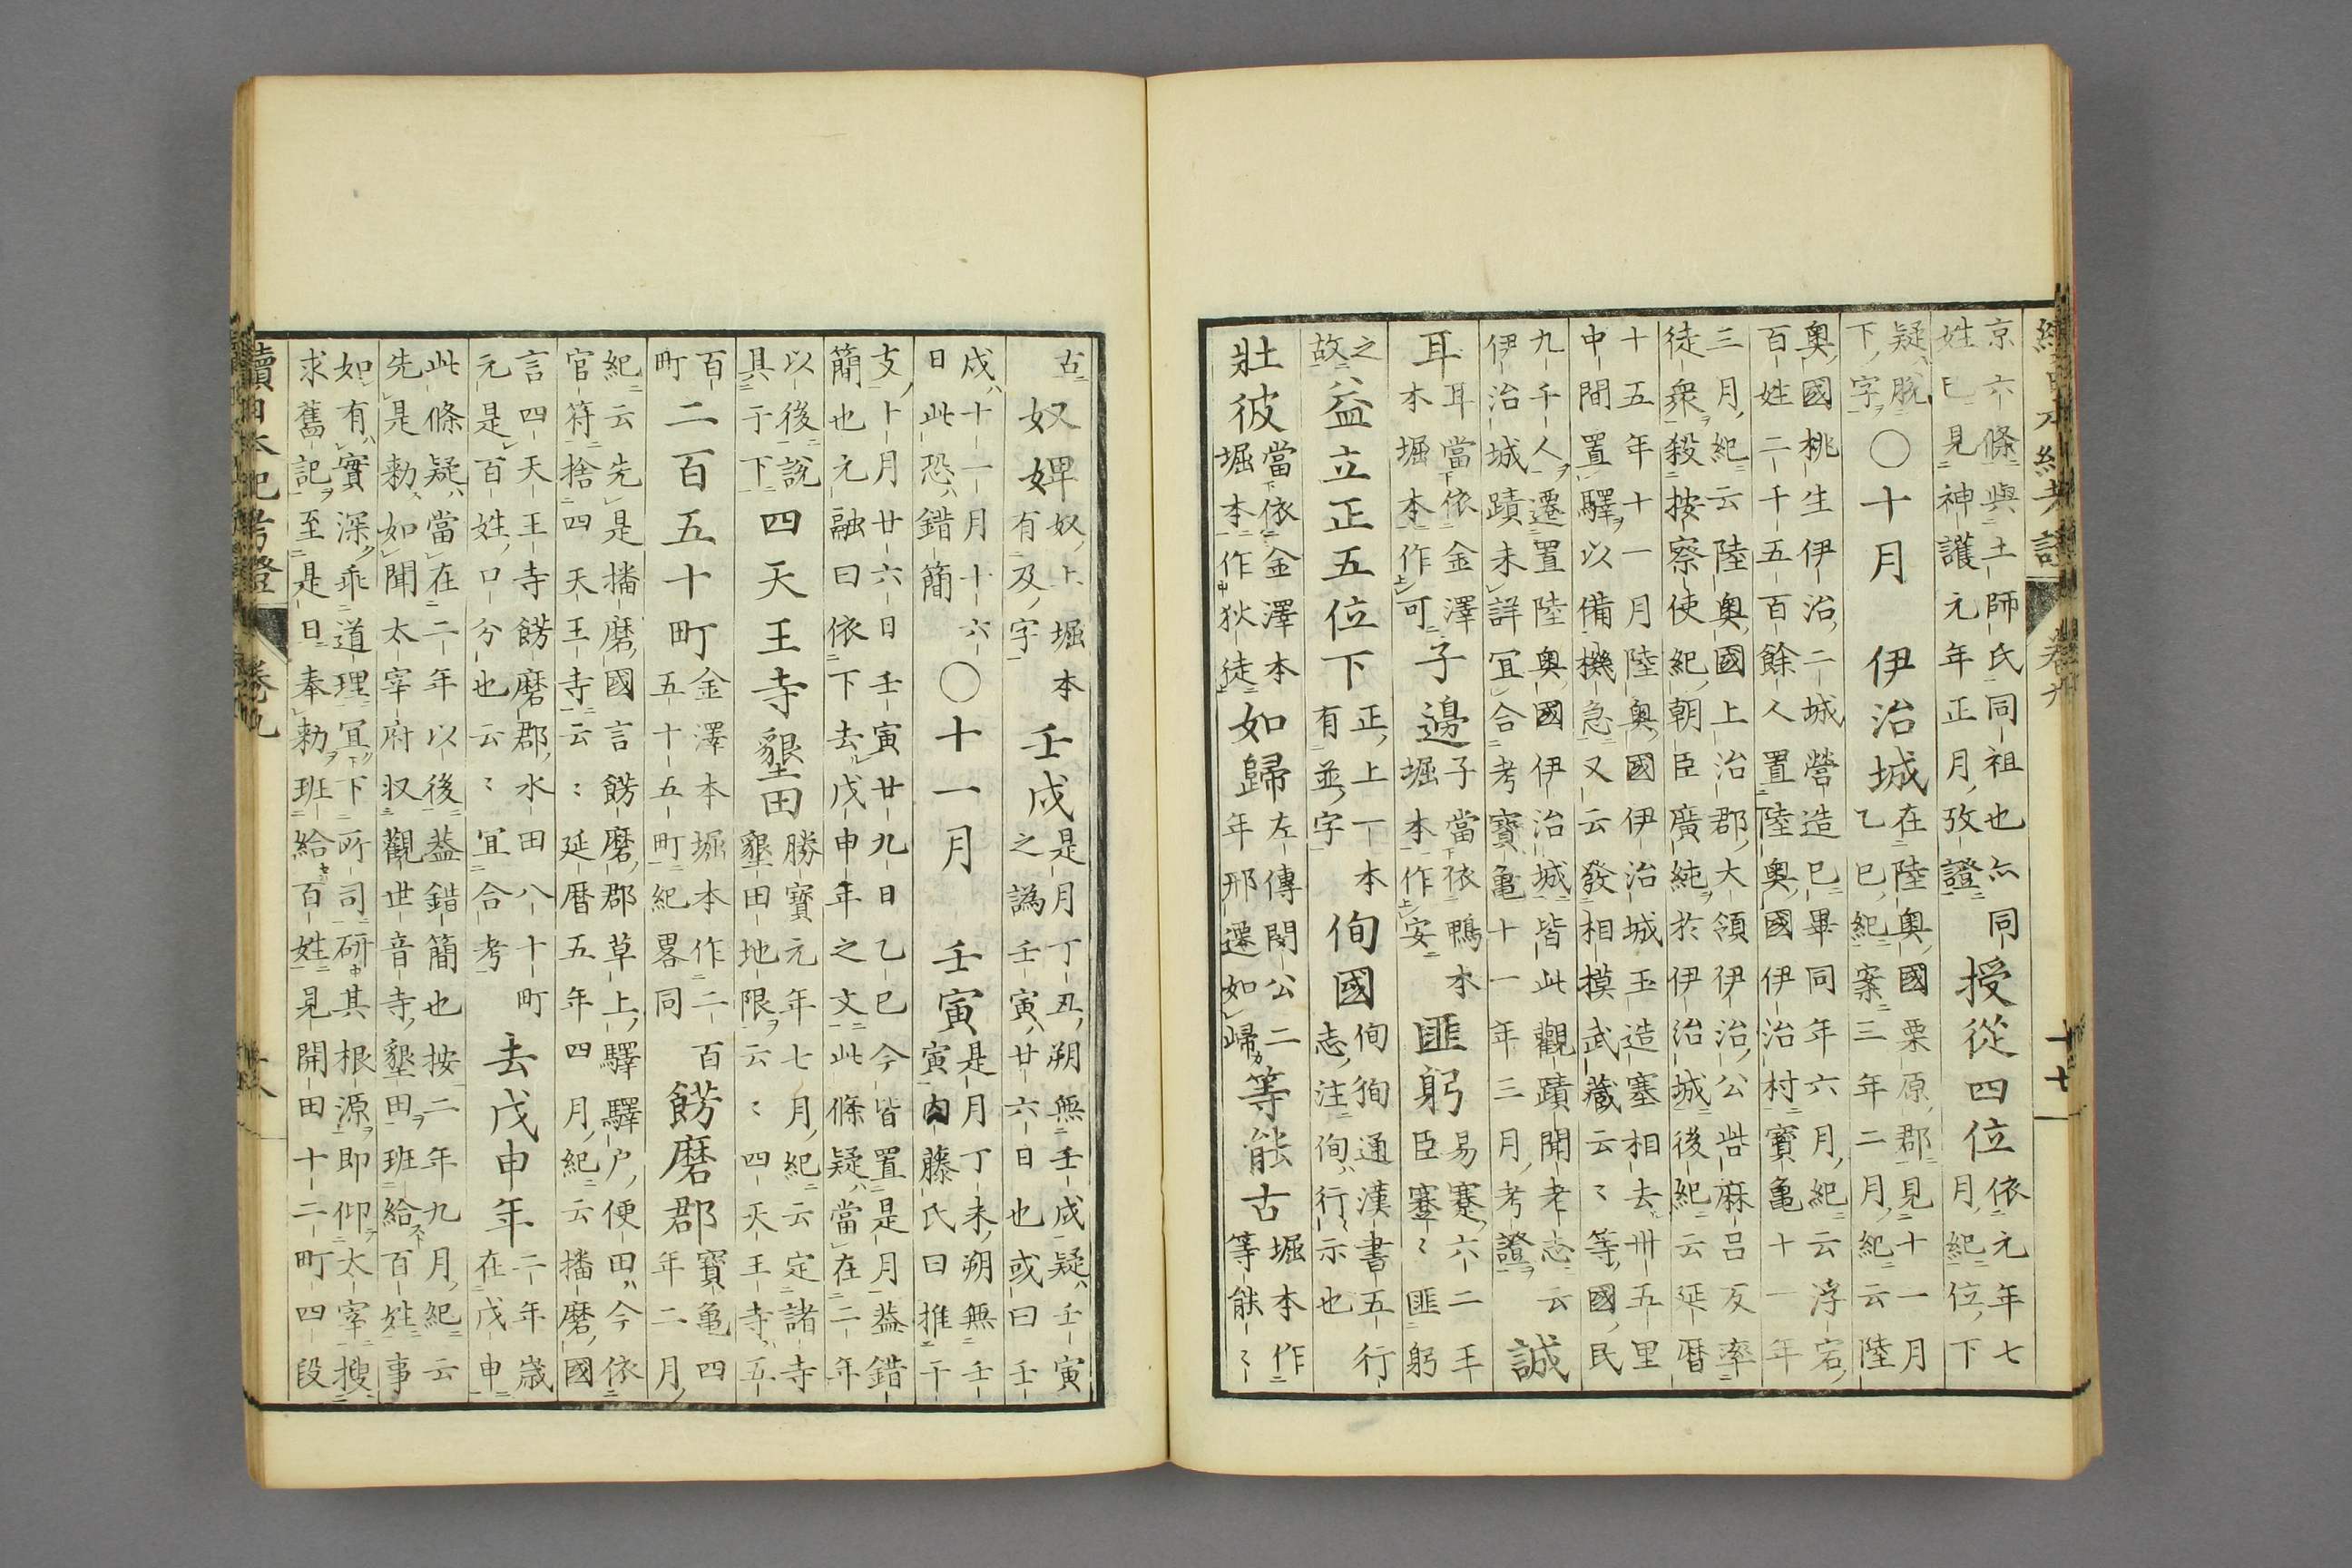 京六條與土師氏同祖也亦同
姓巳見神護元年正月攷證
授從四位
依元年七
月紀位下
疑脫
下字
○十月　伊治城
在陸奧國栗原郡見十一月
乙巳紀案三年二月紀云陸
奧國桃生伊治二城營造已畢同年六月紀云浮宕
百姓二千五百餘人置陸奧國伊治村寶亀十一年
三月紀云陸奧國上治郡大領伊治公呰麻呂反率
徒衆殺按察使紀朝臣廣純於伊治城後紀云延暦
十五年十一月陸奧國伊治城玉造塞相去卅五里
中間置驛以備機急又云發相摸武藏云〻等國民
九千人遷置陸奧國伊治城皆此觀蹟聞老志云
伊治城蹟未詳冝合考寶亀十一年三月考證
誠
耳
耳當依金澤
本堀本作可
子邊
子當依鴨本
堀本作安
匪躬
易蹇六二王
臣蹇〻匪躬
之
故
益立正五位下
正上一本
有並字
侚國
侚狥通漢書五行
志注侚行示也
壯彼
當依金澤本
堀本作狄徒
如歸
左傳閔公二
年邢遷如歸
等能古
堀本作
等能〻
古
奴婢
奴上堀本
有及字
壬戌
是月丁丑朔無壬戌疑壬寅
之譌壬寅廿六日也或曰壬
戌十一月十六
日此恐錯簡
○十一月　壬寅
是月丁未朔無壬
寅內藤氏曰推干
支十月廿六日壬寅廿九日乙巳今皆置是月葢錯
簡也元融曰依下去戊申年之文此條疑當在二年
以後說
具于下
四天王寺墾田
勝寶元年七月紀云定諸寺
墾田地限云〻四天王寺五
百
町
二百五十町
金澤本堀本作二百
五十五町紀畧同
餝磨郡
寶亀四
年二月
紀云先是播磨國言餝磨郡草上驛驛户便田今依
官符捨四天王寺云〻延暦五年四月紀云播磨國
言四天王寺餝磨郡水田八十町
元是百姓口分也云〻冝合考
去戊申年
二年歳
在戊申
此條疑當在二年以後葢錯簡也按二年九月紀云
先是勅如聞太宰府収觀世音寺墾田班給百姓事
如有實深乖道理冝下所司研其根源即仰太宰搜
求舊記至是日奉勅班給百姓見開田十二町四段
續日本紀考證　卷九